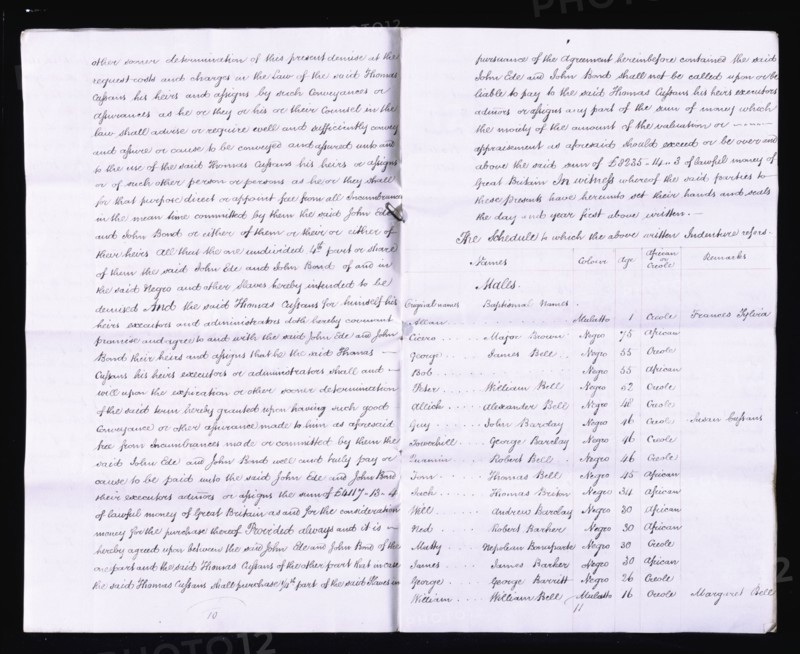 other sooner determination of this present demise at the
request costs and charges in the Law of the said Thomas
Cussans his heirs and assigns by such Conveyances or
Assurances as he or they or his or their Counsel in the
law shall advise or require well and sufficiently convey
and assure or cause to be conveyed and assured unto and
to the use of the said Thomas Cussans his heirs or assigns
or of such other person or persons as he or they shall
for that purpose direct or appoint free from all Incumbrances
in the mean time committed by them the said John Ede
and John Bond or either of them or their or either of
their heirs All that the one undivided 4th part or share
of them the said John Ede and John Bond of and in
the said Negro and other Slaves hereby intended to be
demised And the said Thomas Cussans for himself his
heirs executors and administrators doth hereby covenant
promise and agree to and with the said John Ede and John
Bond their heirs and assigns that he the said Thomas —
Cussans his heirs executors or administrators shall and —
will upon the expiration or other sooner determination
of the said term hereby granted upon having such good
Conveyance or other assurance made to him as aforesaid
free from Incumbrances made or committed by them the
said John Ede and John Bond well and truly pay or
cause to be paid unto the said John Ede and John Bond
their executors admors or assigns the sum of £4117-13-4
of lawful money of Great Britain as and for the consideration
money for the purchase thereof Provided always and it is —
hereby agreed upon between the said John Ede and John Bond of the
one part and the said Thomas Cussans of the other part that in case
the said Thomas Cussans shall purchase 1/4th part of the said Slaves in
10
pursuance of the Agreement hereinbefore contained the said
John Ede and John Bond shall not be called upon or be
liable to pay to the said Thomas Cussans his heirs executors
admors or assigns any part of the sum of money which
the moiety of the amount of the valuation or ———
appraisement as aforesaid should exceed or be over and
above the said sum of £8235-14-3 of lawful money of
Great Britain In witness whereof the said parties to —
these presents have hereunto set their hands and seals
the day and year first above written. —
The Schedule to which the above written Indenture refers.
Names Colour Age African or Creole Remarks
Males.
Original names Baptismal Names.
Mulatto 1 Creole Frances
Cicero Major Brown Negro 75 African
George James Bell Negro 55 Creole
Bob Negro 55 African
Peter William Bell Negro 52 Creole
Alexander Bell Negro 48 Creole
Guy John Barclay Negro 46 Creole Susan Cussans
George Barclay Negro 46 Creole
Quamin Robert Bell Negro 46 Creole
Tom Thomas Bell Negro 45 African
Jack Thomas Negro 34 African
Will Andrew Barclay Negro 30 African
Ned Robert Barker Negro 30 African
Matty Napolean Bonaparte Negro 30 Creole
James James Barker Negro 30 African
George George Barritt Negro 26 Creole
William William Bell Mulatto 16 Creole Margaret Bell
11